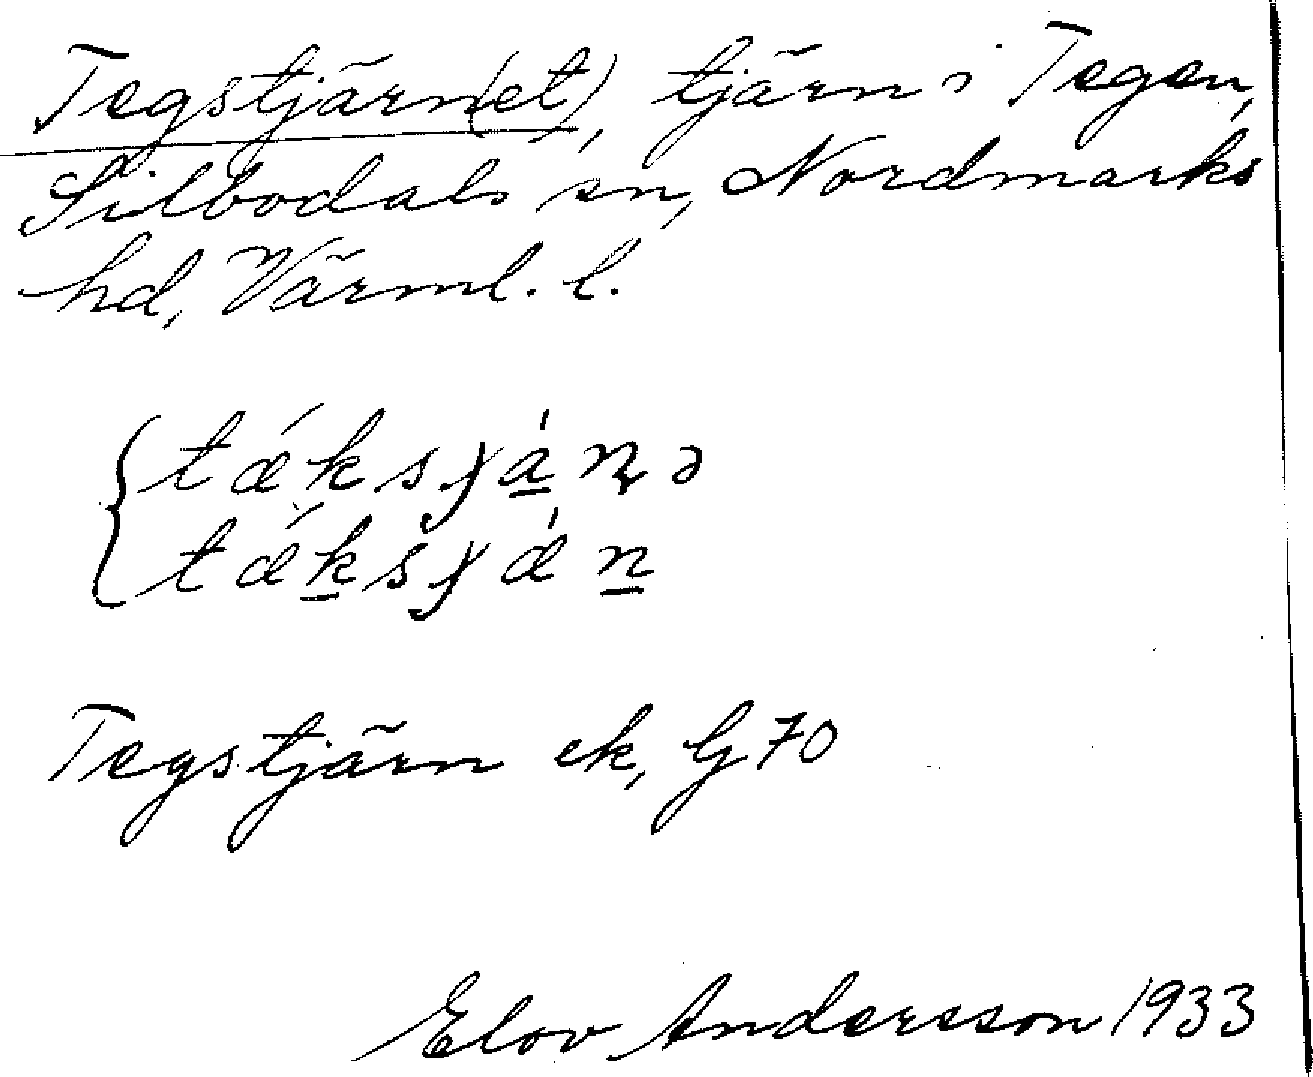 Tegstjärn(et), tjärn i Tegen,
Silbodals sn, Nordmarks
hd, Värml. l.
Tegstjärn ek, G 70
Elov Andersson 1933